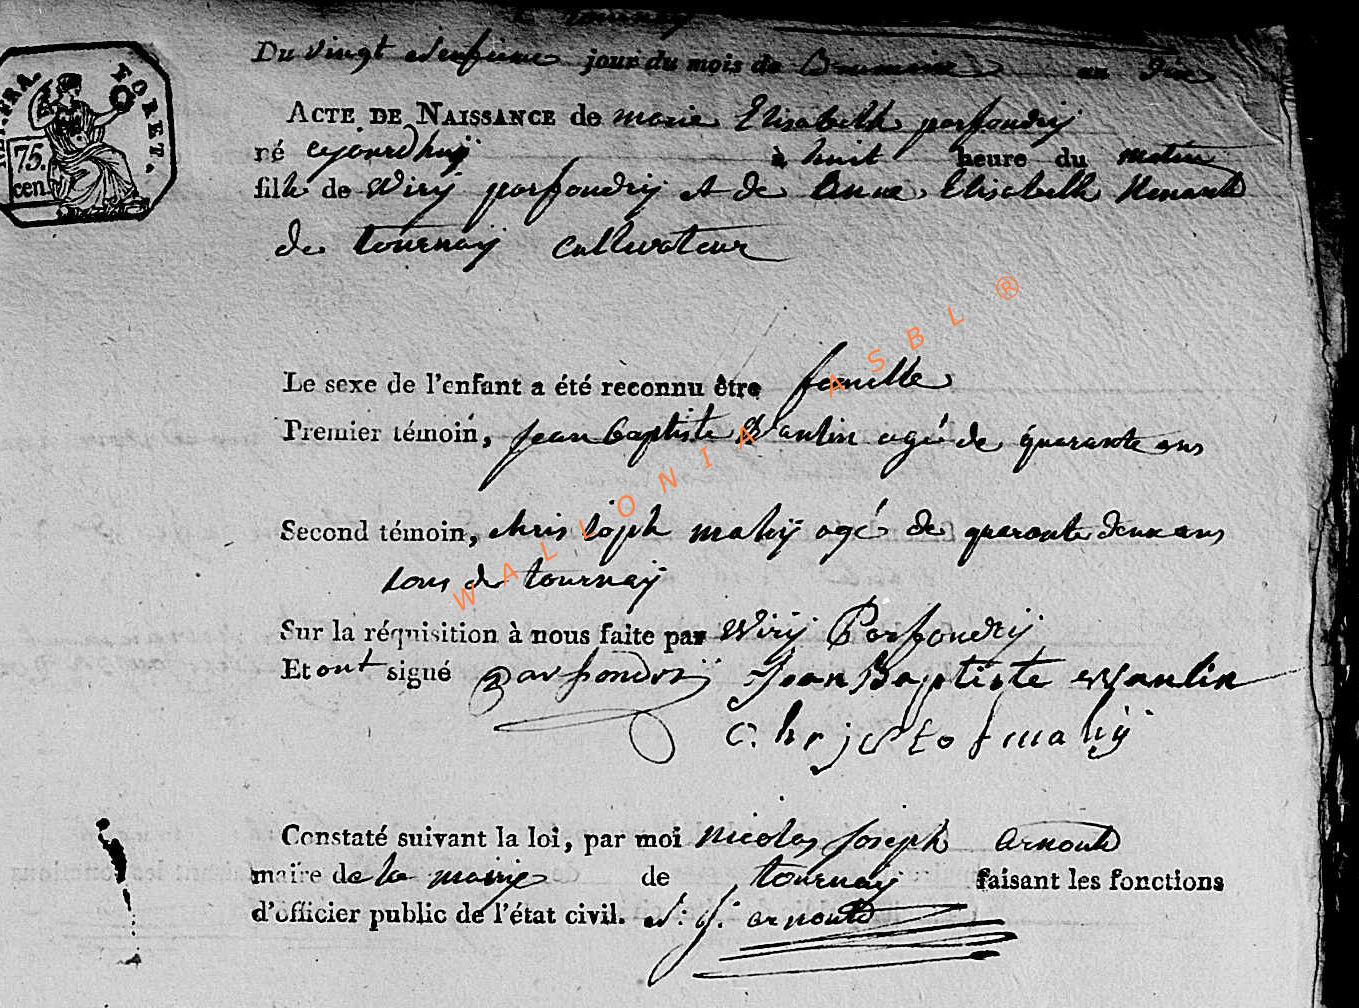 Du vingt jour du mois de Brumaire an dix
RÉP. FRA. FORET.
75. cen.
ACTE DE NAISSANCE de marie Elisabeth parfondrÿ
né cejourdhuÿ à huit heure du matin
fille de Wirÿ parfondrÿ et de Anne Elisabeth
de tournaÿ cultivateur
Le sexe de l'enfant a été reconnu être femelle
Premier témoin, jean baptiste Wanlin agé de quarante ans
Second témoin, chris toph mahÿ agé de quarante deux ans
tous de tournaÿ
Sur la réquisition à nous faite par Wirÿ Parfondrÿ
Et ont signé Parfondrÿ Jean Baptiste Wanlin
Chrjstof mahÿ
Constaté suivant la loi, par moi nicolas joseph arnould
maire de la mairie de tournay faisant les fonctions
d'officier public de l'état civil. N: j: arnould
WALLONIA ASBL ®